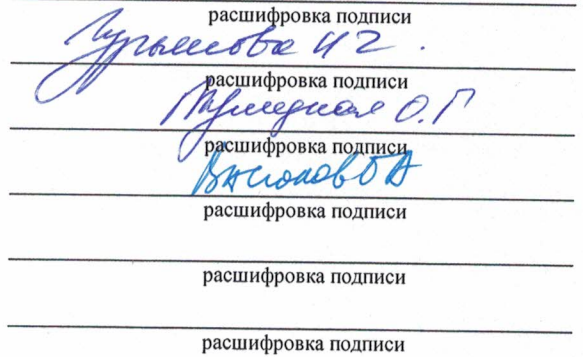 расшифровка подписи
И Г.
расшифровка подписи
О.Г
расшифровка подписи
расшифровка подписи
расшифровка подписи
расшифровка подписи